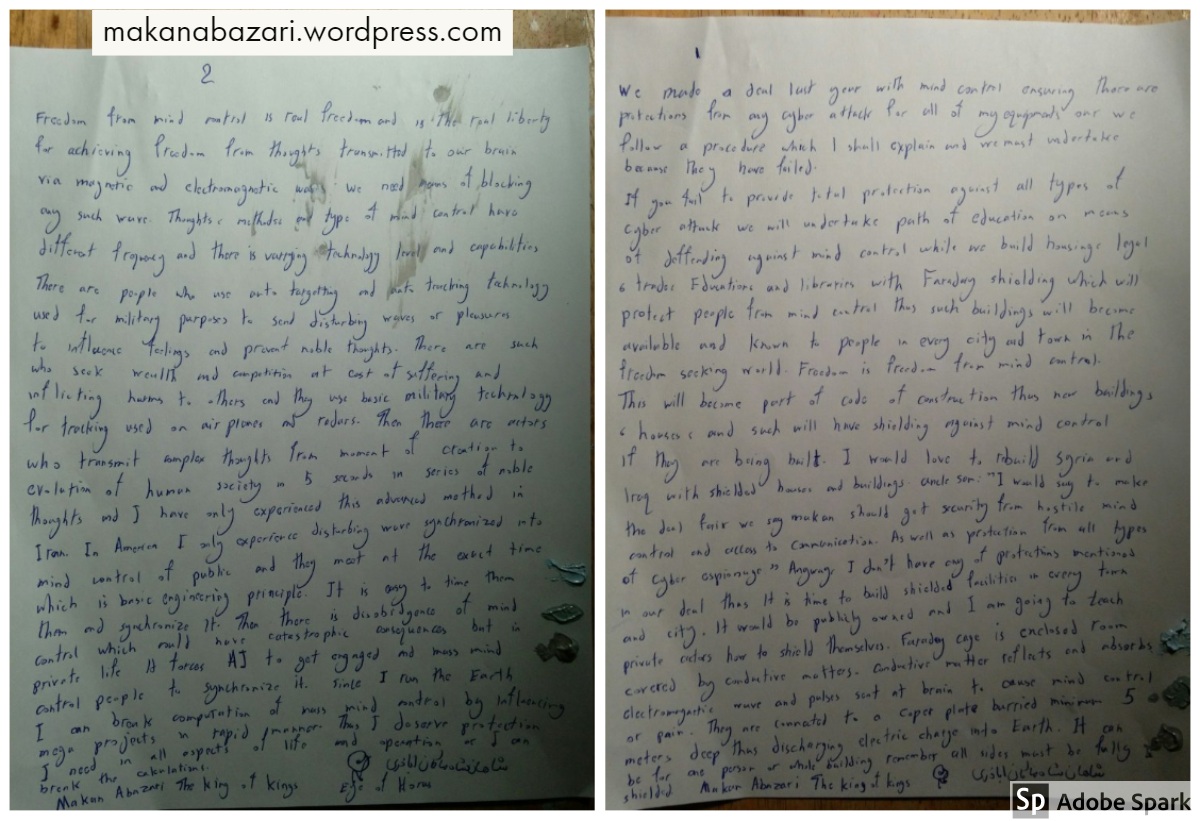 makanabazari.wordpress.com
2
Freedom from mind control is real freedom and is the real liberty
for achieving freedom from thoughts transmitted to our brain
via magnetic and electromagnetic waves we need means of blocking
any such wave. Thoughts methodes and type of mind control have
different frequncy and there is varrying technology level and capabilities
There are people who use auto targetting and auto tracking technology
used for military purposes to send disturbing waves or pleasures
to influence feelings and prevent noble thoughts. There are such
who seek wealth and competition at cost of suffering and
inflicting harms to others and they use basic military technology
for tracking used on airplanes and radars. Then there are actors
who transmit complex thoughts from moment of creation to
evolution of human society in 5 seconds in series of noble
thoughts and I have only experienced this advanced method in
Iran. In America I only experience disturbing wave synchronized into
mind control of public and they meet at the exact time
which is basic engineering principle. It is easy to time them
them and synchronize it. Then there is disobidgence of mind
control which could have catastrophic consequences but in
private life It forces AI to get engaged and mass mind
control people to synchronize it. Since I run the Earth
I can break computation of mass mind control by influencing
mega projects in rapid manner. Thus I deserve protection
I need in all aspects of life and operation or I can
break the calculations.
Makan Abazari The king of kings Eye of Horus
شاهان شاه ماکان اباذری
1
We made a deal last year with mind control ensuring there are
protections from any cyber attack for all of my equipments our we
follow a procedure which I shall explain and we must undertake
because they have failed.
If you fail to provide total protection against all types of
cyber attack we will undertake path of education on means
of deffending against mind control while we build housings legal
& trades Educations and libraries with Faraday shielding which will
protect people from mind control thus such buildings will become
available and known to people in every city and town in the
freedom seeking world. Freedom is freedom from mind control.
This will become part of code of construction thus new buildings
& houses & and such will have shielding against mind control
if they are being built. I would love to rebuild Syria and
Iraq with shielded houses and buildings. uncle sam: "I would say to make
the deal fair we say makan should get security from hostile mind
control and access to communication. As well as protection from all types
of cyber espionage" Anyway. I don't have any of protections mentioned
in our deal thus It is time to build shielded facilities in every town
and city. It would be publicly owned and I am going to teach
private actors how to shield themselves. Faraday cage is enclosed room
covered by conductive matters. conductive matter reflects and absorbs
electromagnetic wave and pulses sent at brain to cause mind control
or pain. They are connected to a coper plate burried minimum 5
meters deep thus discharging electric charge into Earth. It can
be for one person or whole building remember all sides must be fully
shielded Makan Abazari The king of kings
شاهان شاه ماکان اباذری
Sp Adobe Spark